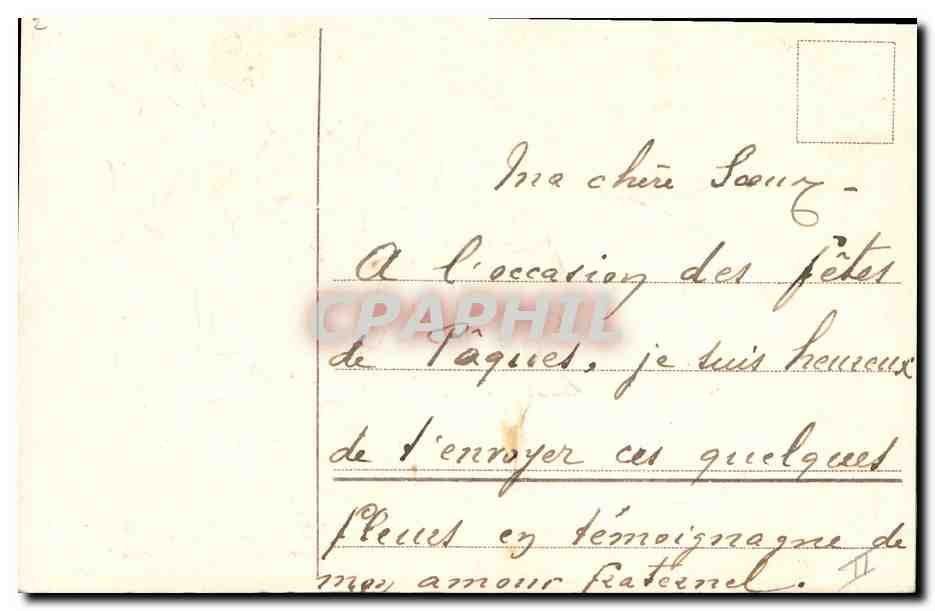 2
Ma chère Soeur -
A l'occasion des fêtes
CPAPHIL
de Pâques, je suis heureux
de t'envoyer ces quelques
fleurs en témoignagne de
mon amour fraternel.
II